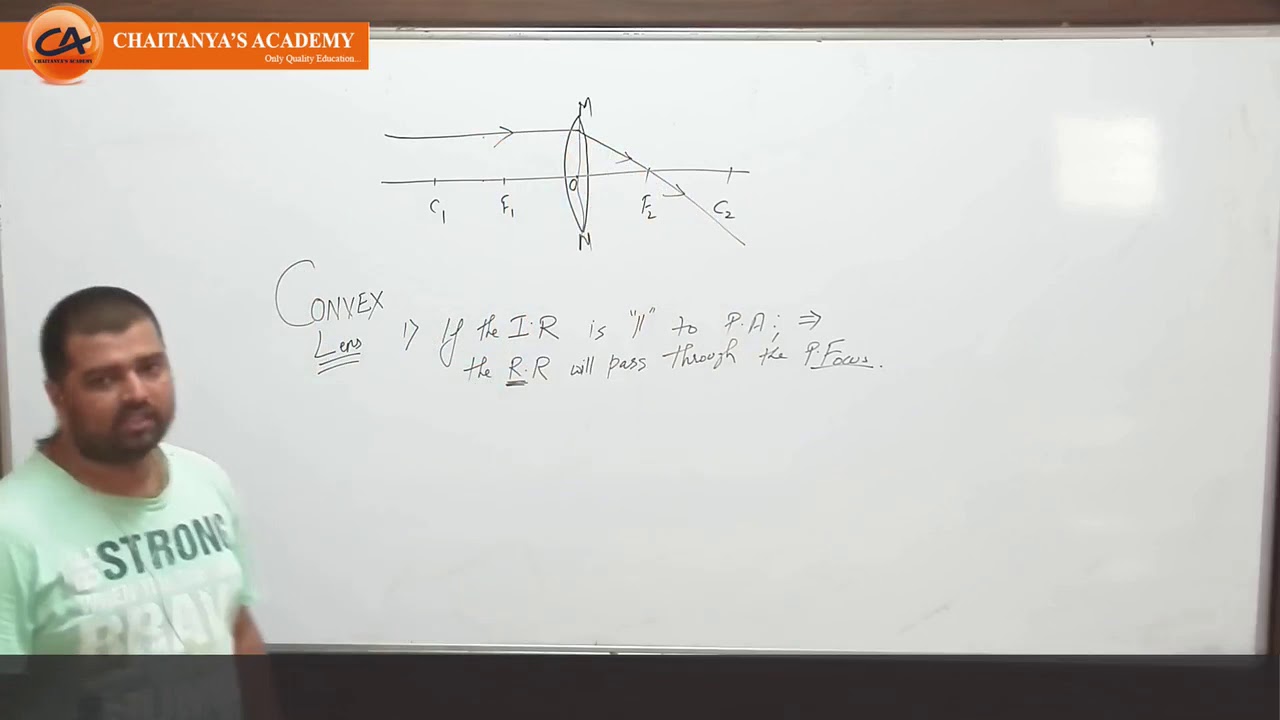 CA
CHAITANYA'S ACADEMY
CHAITANYA'S ACADEMY
Only Quality Education...
M
O
C1 F1 F2 C2
N
CONVEX
Lens
1) If the I.R is "//" to P.A; ⇒
the R.R will pass through the P.Focus.
#STRONG
BRAV